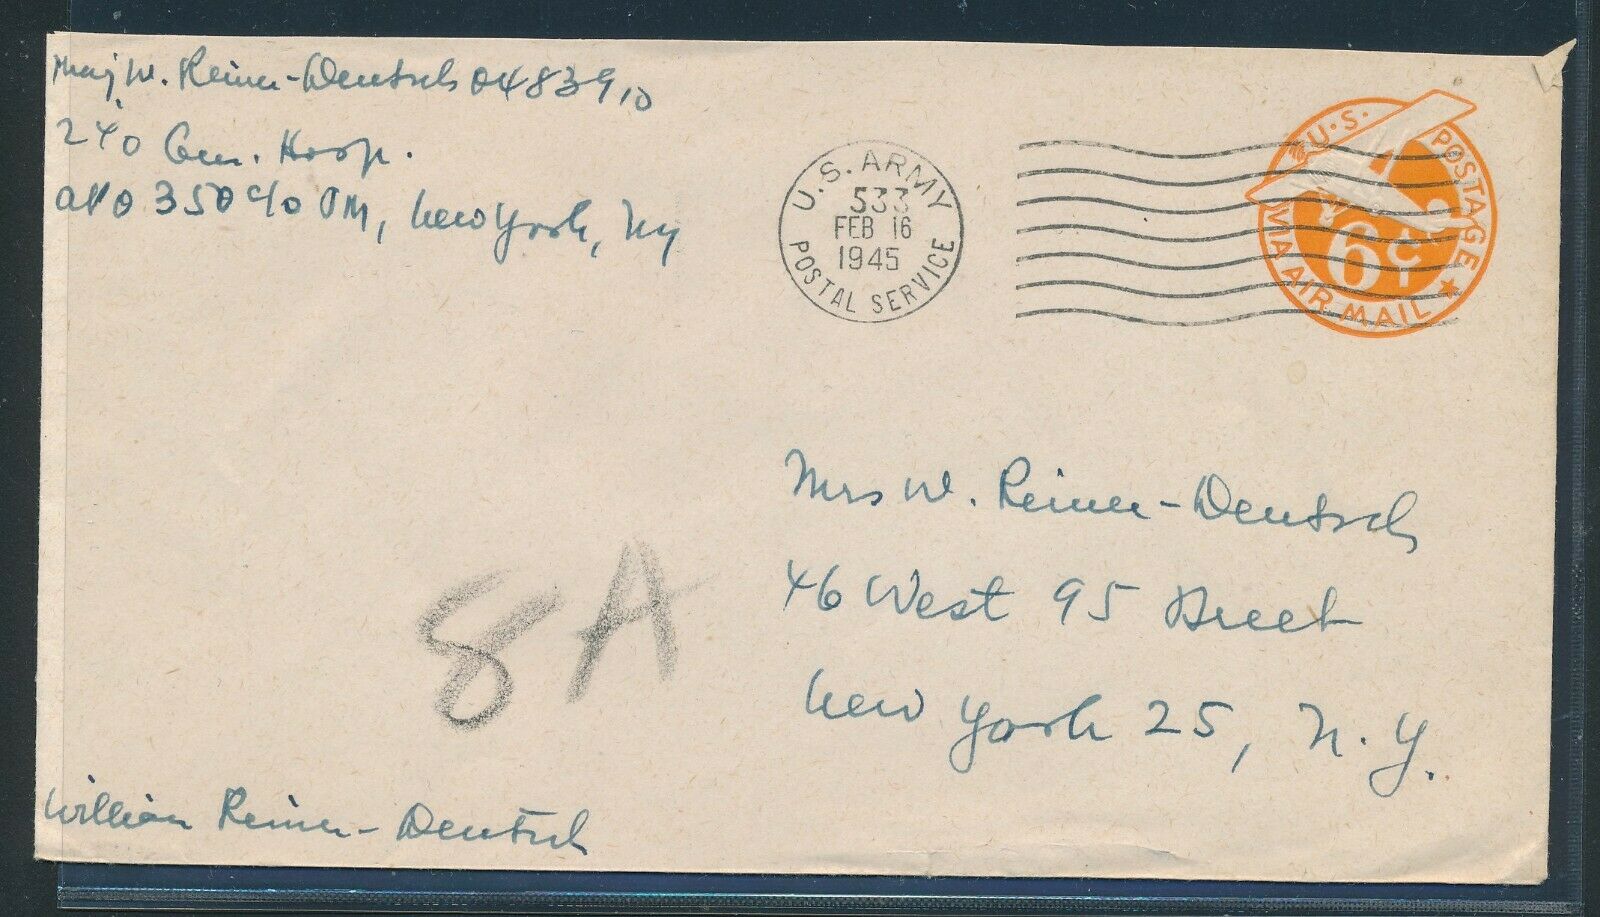 Maj W. Reiner-Deutsch 0483910
240 Gen. Hosp.
APO 350 c/o PM, New York, NY
U.S. ARMY
533
FEB 16
1945
POSTAL SERVICE
U.S. POSTAGE
6¢
VIA AIR MAIL
Mrs W. Reiner-Deutsch
46 West 95 Street
New York 25, N.Y.
8A
William Reiner-Deutsch